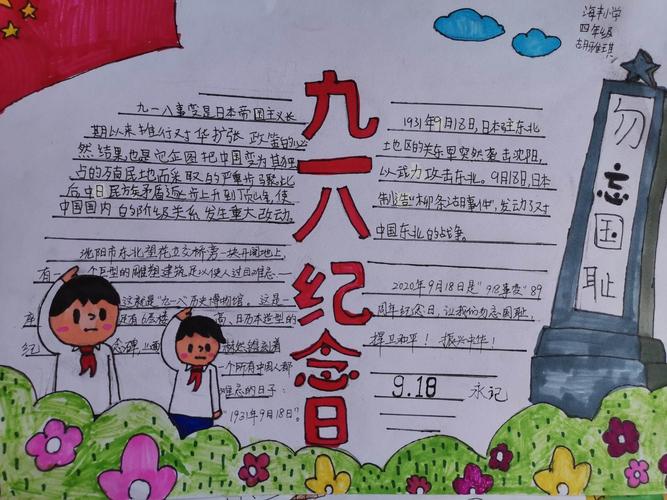 海丰小学
四年级
胡雅琪
九一八纪念日
九一八事变是日本帝国主义长
期以来推行对华扩张政策的必
然结果也是企图把中国变为其独
占的殖民地而采取的严重步骤此
后中日民族矛盾逐步上升到顶峰使
中国国内的阶级关系发生重大改动。
沈阳市东北望花立交桥旁一块开阔地上,
有一个巨型的雕塑建筑足以使人过目难忘—
这就是九一八历史博物馆。这是一
座 还有6层楼 高、日历本造型的
纪念碑,上面 赫然镌刻着
一个所有中国人都
难忘的日子:
"1931年9月18日"。
1931年9月18日,日本驻东北
地区的关东军突然袭击沈阳,
以武力攻击东北。9月18日,日本
制造"柳条沽事件",发动了对
中国东北的战争。
2020年9月18日是"918事变"89
周年纪念日,让我们勿忘国耻,
捍卫和平!振兴中华!
9.18 永记
勿忘国耻